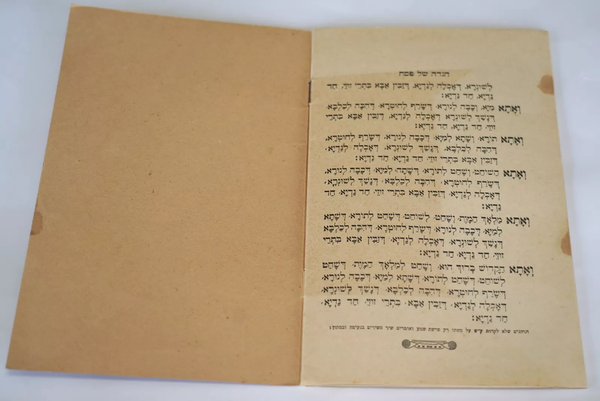 הגדה של פסח
לְשׁוּנְרָא, דְּאָכְלָה לְגַדְיָא, דְּזַבִּין אַבָּא בִּתְרֵי זוּזֵי, חַד
גַּדְיָא, חַד גַּדְיָא:
וְאָתָא מַיָּא, וְכָבָה לְנוּרָא, דְּשָׂרַף לְחוּטְרָא, דְּהִכָּה לְכַלְבָּא,
דְּנָשַׁךְ לְשׁוּנְרָא, דְּאָכְלָה לְגַדְיָא, דְּזַבִּין אַבָּא בִּתְרֵי
זוּזֵי, חַד גַּדְיָא, חַד גַּדְיָא:
וְאָתָא תוֹרָא, וְשָׁתָא לְמַיָּא, דְּכָבָה לְנוּרָא, דְּשָׂרַף לְחוּטְרָא,
דְּהִכָּה לְכַלְבָּא, דְּנָשַׁךְ לְשׁוּנְרָא, דְּאָכְלָה לְגַדְיָא,
דְּזַבִּין אַבָּא בִּתְרֵי זוּזֵי, חַד גַּדְיָא, חַד גַּדְיָא:
וְאָתָא הַשּׁוֹחֵט, וְשָׁחַט לְתוֹרָא, דְּשָׁתָה לְמַיָּא, דְּכָבָה לְנוּרָא,
דְּשָׂרַף לְחוּטְרָא, דְּהִכָּה לְכַלְבָּא, דְּנָשַׁךְ לְשׁוּנְרָא,
דְּאָכְלָה לְגַדְיָא, דְּזַבִּין אַבָּא בִּתְרֵי זוּזֵי, חַד גַּדְיָא, חַד
גַּדְיָא:
וְאָתָא מַלְאַךְ הַמָּוֶת, וְשָׁחַט, לְשׁוֹחֵט, דְּשָׁחַט לְתוֹרָא, דְּשָׁתָא
לְמַיָּא, דְּכָבָה לְנוּרָא, דְּשָׂרַף לְחוּטְרָא, דְּהִכָּה לְכַלְבָּא
דְּנָשַׁךְ לְשׁוּנְרָא, דְּאָכְלָה לְגַדְיָא, דְּזַבִּין אַבָּא בִּתְרֵי
זוּזֵי, חַד גַּדְיָא, חַד גַּדְיָא:
וְאָתָא הַקָּדוֹשׁ בָּרוּךְ הוּא, וְשָׁחַט לְמַלְאַךְ הַמָּוֶת, דְּשָׁחַט
לְשׁוֹחֵט, דְּשָׁחַט לְתוֹרָא, דְּשָׁתָא לְמַיָּא, דְּכָבָה לְנוּרָא,
דְּשָׂרַף לְחוּטְרָא, דְּהִכָּה לְכַלְבָּא, דְּנָשַׁךְ לְשׁוּנְרָא,
דְּאָכְלָה לְגַדְיָא, דְּזַבִּין אַבָּא, בִּתְרֵי זוּזֵי, חַד גַּדְיָא,
חַד גַּדְיָא:
שלא לקרות ק"ש על מטתו רק פרשת שמע ואומרים שיר השירים בנעימה